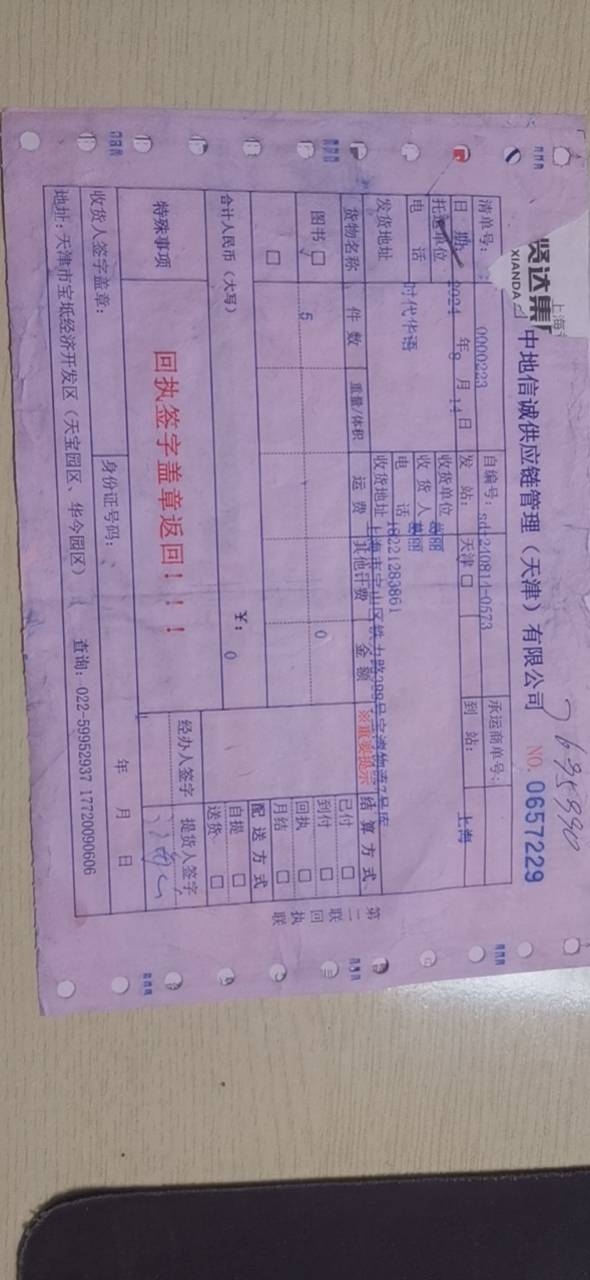 贤达集
XIANDA
上海
中地信诚供应链管理（天津）有限公司
NO. 0657229
清单号： 0000223
自编号：sdy240814-0573
承运商单号：
日 期： 2024 年 8 月 14 日
发 站： 天津
到 站： 上海
托运单位 时代华语
收货单位
电 话
收 货 人
电 话 18221283861
发货地址
收货地址
货物名称
件 数
重量/体积
运 费
其他计费
金 额
※重要提示
结 算 方 式
图书
5
0
已付
到付
回执
月结
配 送 方 式
自提
送货
合计人民币（大写）
¥： 0
特殊事项
回执签字盖章返回！！！
经办人签字
提货人签字
收货人签字盖章：
身份证号码：
年 月 日
地址：天津市宝坻经济开发区（天宝园区、华今园区）
查询：022-59952937 17720090606
第二联 回执联